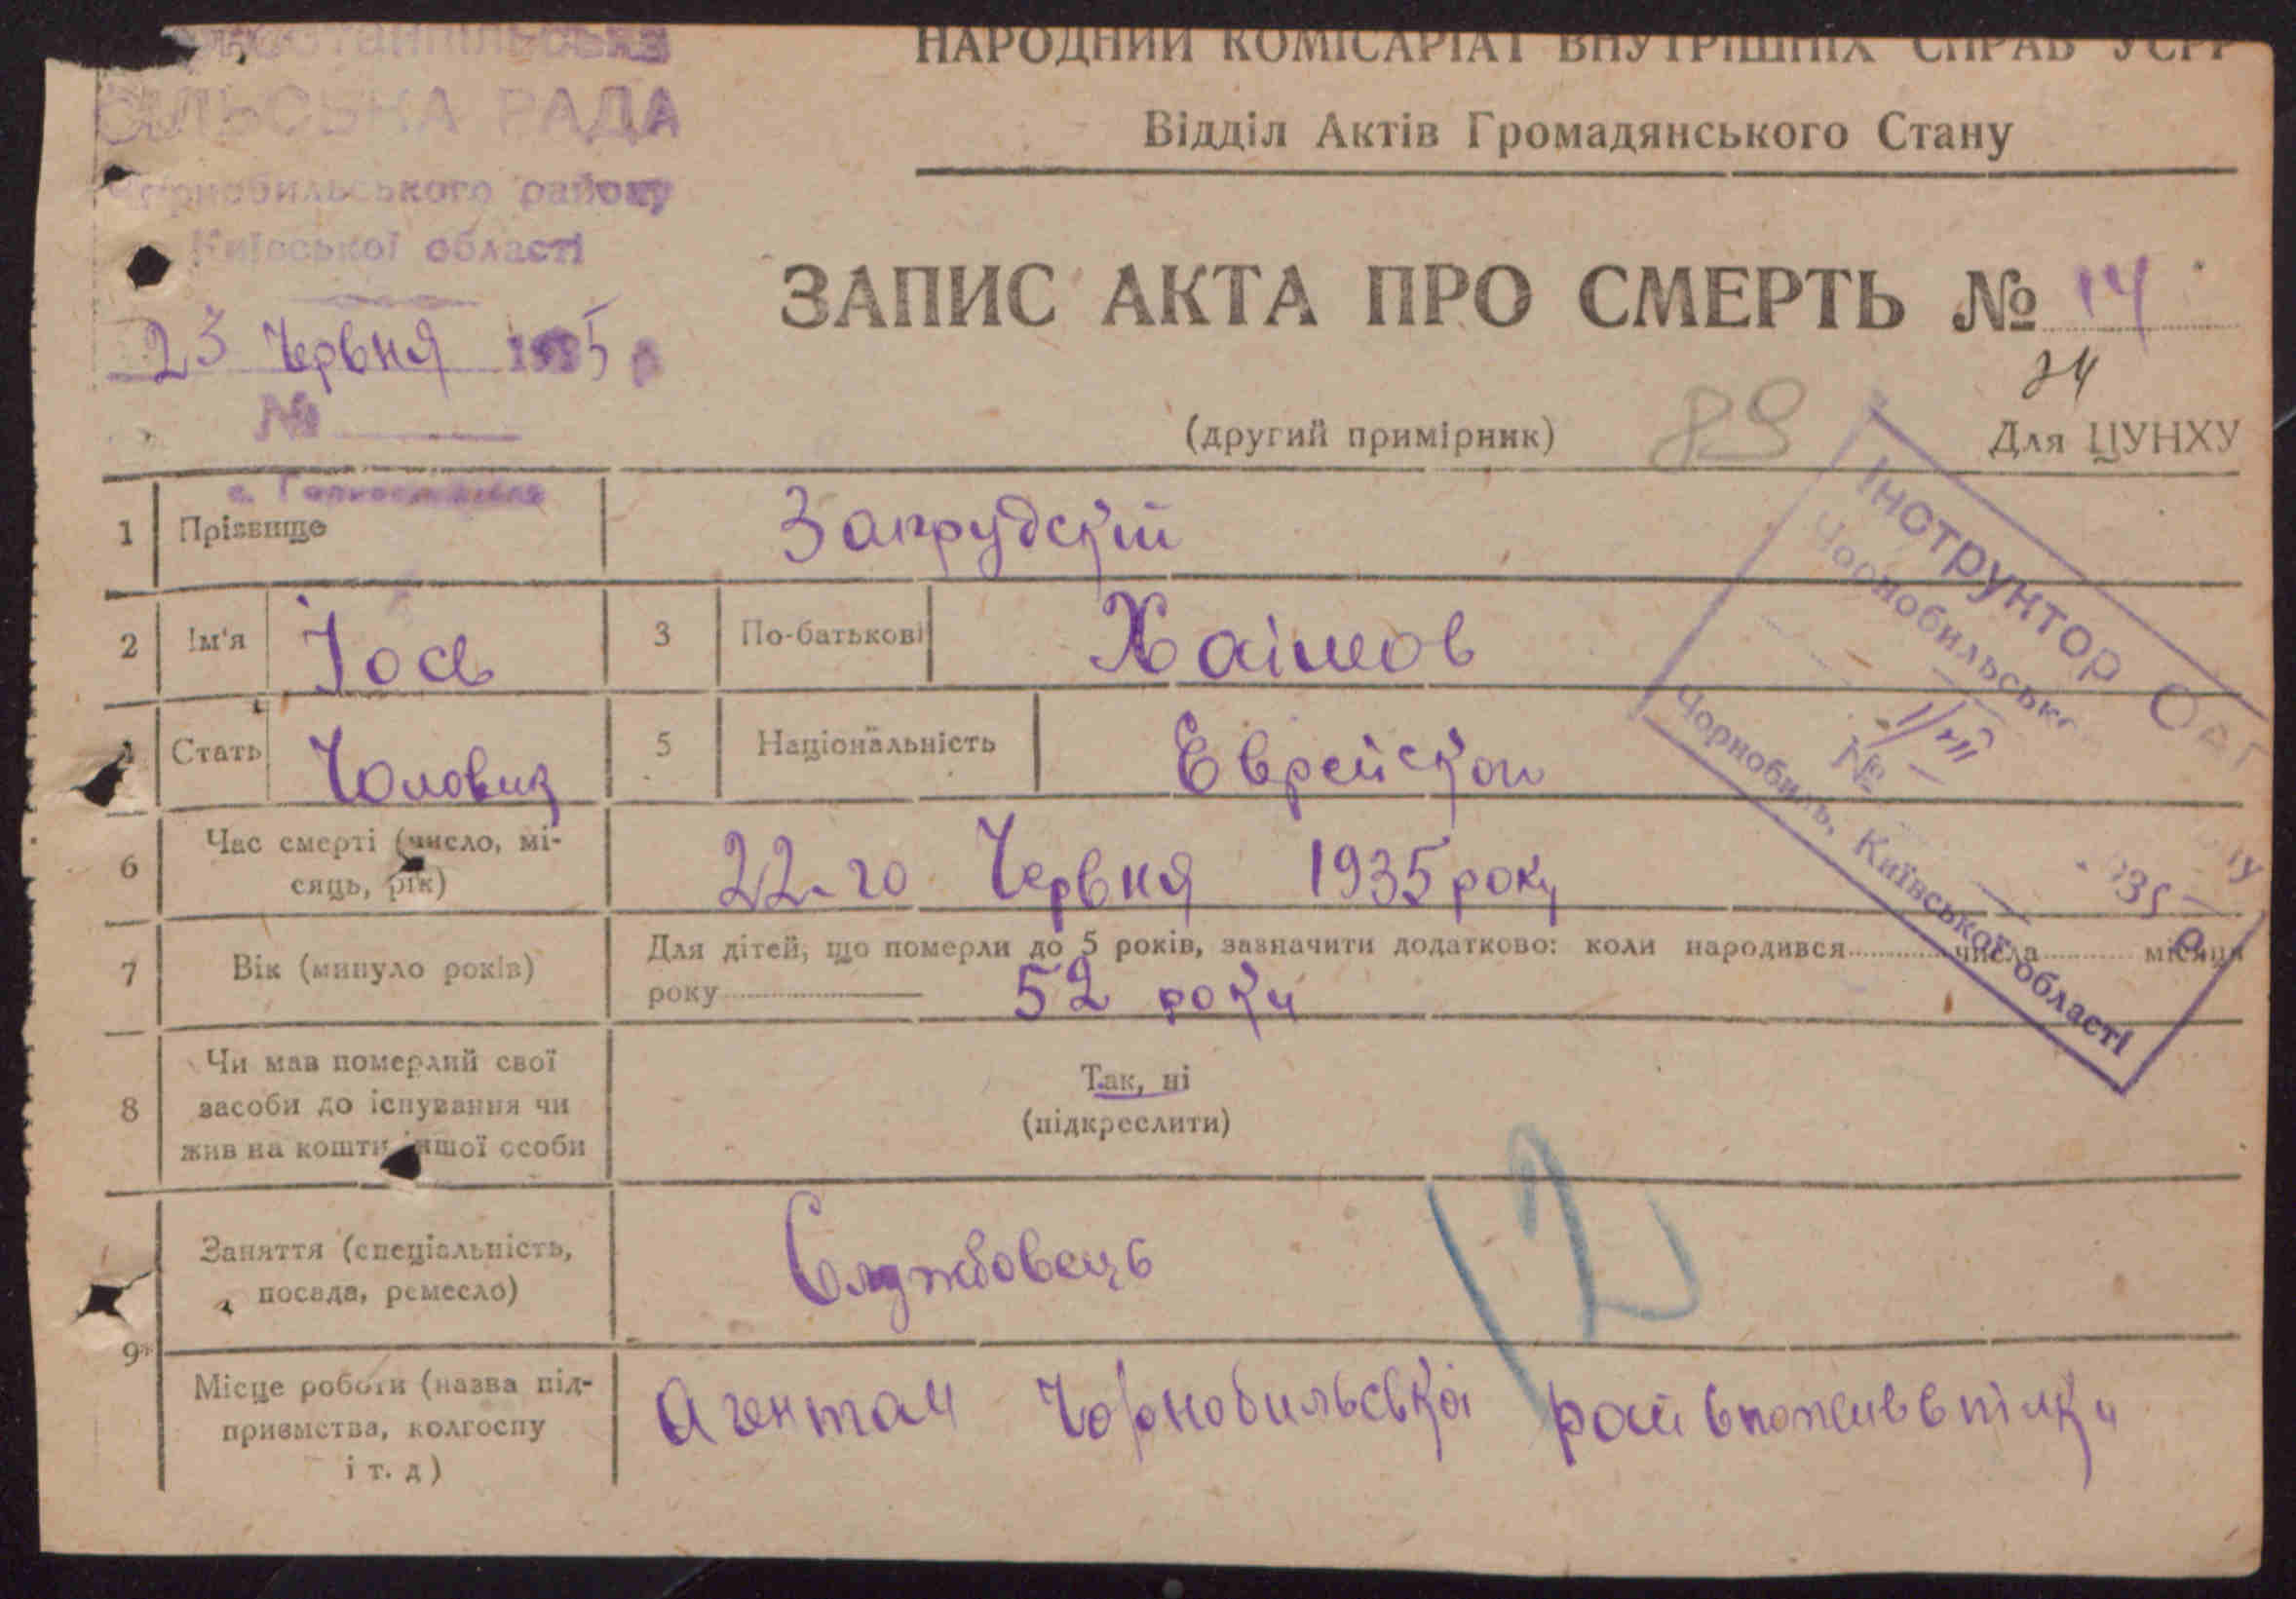 СІЛЬСЬКА РАДА
Чорнобильського району
Київської області
23 Червня 1935 р
№
НАРОДНИЙ КОМІСАРІАТ ВНУТРІШНІХ СПРАВ УСРР
Відділ Актів Громадянського Стану
ЗАПИС АКТА ПРО СМЕРТЬ № 14
24
(другий примірник)
89
Для ЦУНХУ
1 Прізвище Запрудский
2 Ім'я Іось 3 По-батькові Хаімов
4 Стать Чоловик 5 Національність Еврейскои
6 Час смерті (число, мі-
сяць, рік) 22-го Червня 1935 року
7 Вік (минуло років) Для дітей, що померли до 5 років, зазначити додатково: коли народився числа місяця
року 52 роки
8 Чи мав померлий свої
засоби до існування чи
жив на кошти іншої особи
Так, ні
(підкреслити)
9 Заняття (спеціальність,
посада, ремесло) Службовець
Місце роботи (назва під-
приємства, колгоспу
і т. д)
Агентам Чорнобильськоі райвпоживвпілки
12
Інструктор ОАГС
Чорнобильсько
1/VII
№
935 р
Чорнобиль, Київської області